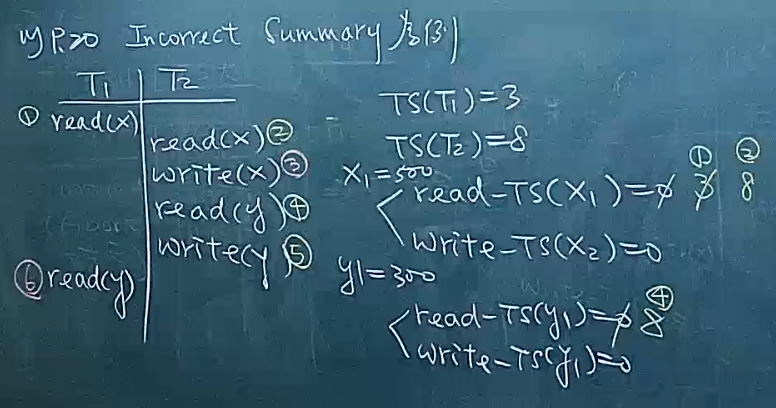 Incorrect Summary
T1 T2
① read(x)
read(x) ②
write(x) ③
read(y) ④
write(y) ⑤
⑥ read(y)
TS(T1)=3
TS(T2)=8
① ②
X1=500
read-TS(X1)=0 3 8
write-TS(X2)=0
y1=300
④
read-TS(y1)=0 8
write-TS(y1)=0